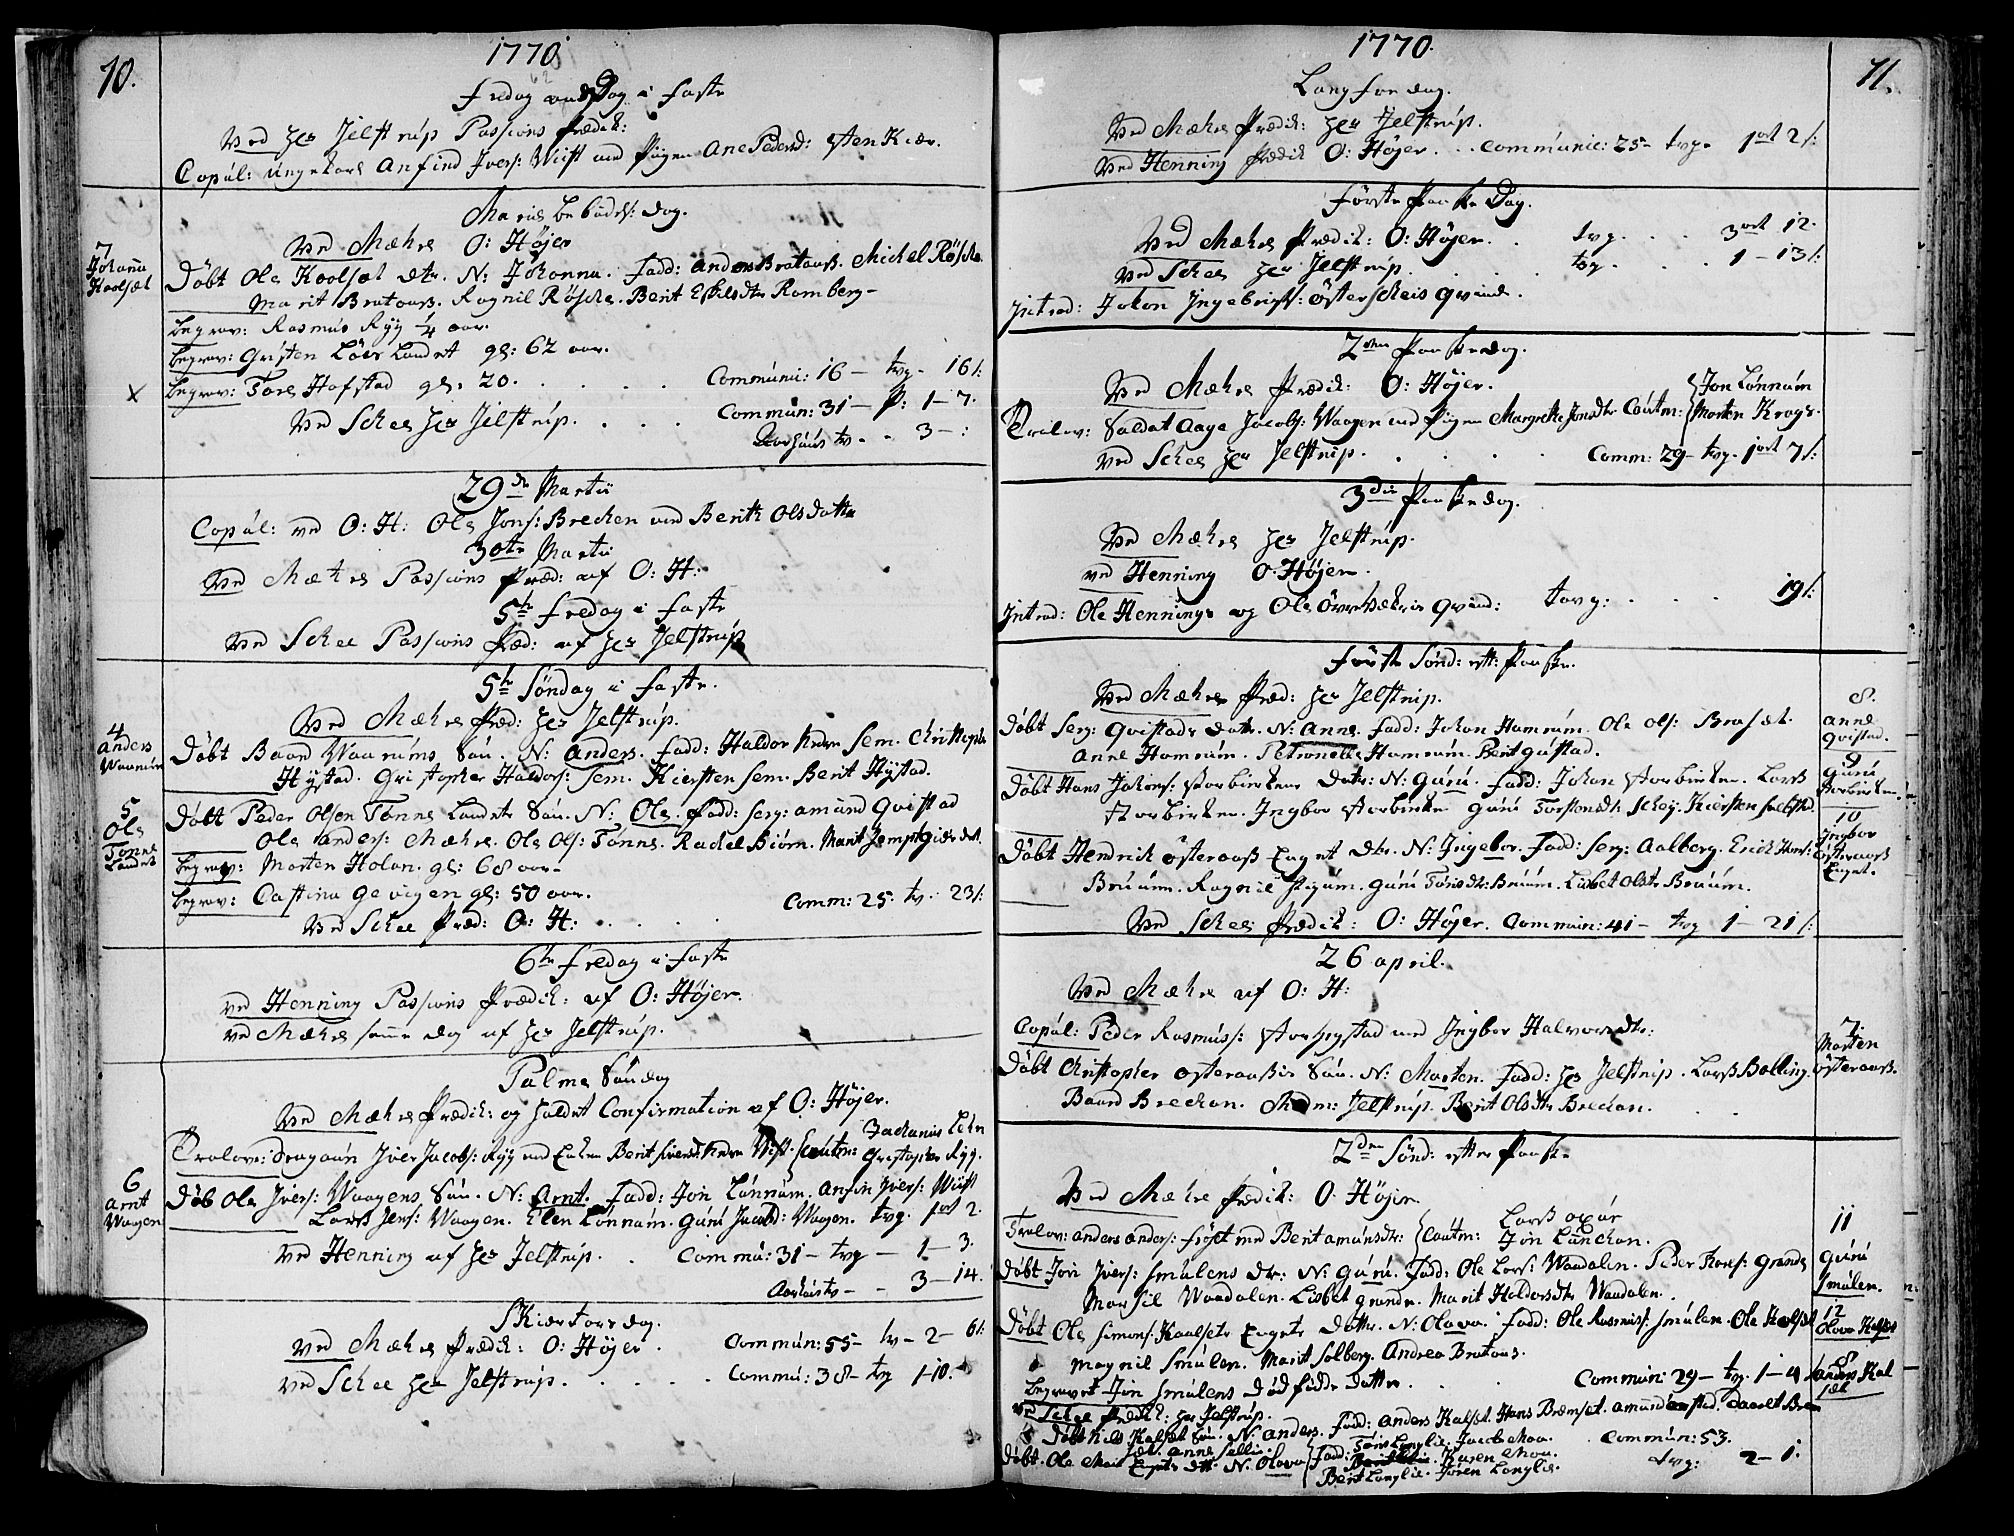 10.
1770
Fredag Dag i Faste
Ved Hr Jelstrup Passions Prædik:
Copul: Ungekarl Anfind Ivers: Wüst med Pigen Ane Pedersd: StenKiær.
Mariæ Bebudels: Dag.
Ved Mæhre O: Höjer
7 Johanna Koolsæt
Döbt Ole Koolsæt Dtr. N: Johanna. Fadd: Anders Brataas. Michel Röske.
Marit Brataas. Ragnil Röske. Berit Eskilsdtr Romberg-
Begrav: Rasmus Ryg 1/4 aar.
Begrav: Cristen Löer Landet gl: 62 aar.
Begrav: Tore Hofstad gl. 20. . . . . Communic: 16 - tvg- 16 s:
x
Ved Schee Hr Jelstrup. . . . Commun: 31 - 1-7.
3 -:
29de Martii
Copul: ved O: H: Ole Jons: Brecken med Berith Olsdatter
30te Martii
Ved Mæhre Passions Præd: af O: H:
5te Fredag i Faste
Ved Schee Passions Præd: af Hr Jelstrup
5te Söndag i Faste.
Ved Mæhre Præd: Hr Jelstrup.
4 Anders Waanum
Döbt Baard Waanums Sön. N: Anders. Fadd: Haldor Sem. Christopher
Hystad. Cristopher Haldors: Sem. Kiersten Sem. Berit Hystad.
5 Ole Tønne Landet
Döbt Peder Olsen Tønne Landets Sön. N: Ole. Fadd: Serg: Amund Qvistad
Ole Anders: Mæhre. Ole Ols: Tønne. Rachel Biörn. Marit
Begrav: Morten Holan. gl: 68 aar-
Begrav: gl: 50 aar. Comm: 25. tv. 23 s:
Ved Schee Præd: O: H: . . .
6te Fredag i Faste
Ved Henning Passions Prædik: af O: Höjer.
Ved Mæhre samme Dag af Hr Jelstrup.
Palme Söndag
Ved Mæhre Prædik: og holdt Confirmation af O: Höjer.
Trolov: Dragoun Iver Jacobs: Ryg med Enken Berit Wist. Cautm: Zacharius Lehn
Cristopher Ryg.
6 Arnt Waagen
Döb Ole Ivers: Waagens Sön. N: Arnt. Fadd: Jon Lönnum. Anfin Ivers: Wüst
Lars Jens: Waagen. Elen Lönnum. Guru Jacobs: Waagen. tvg. 1 ort 2.
Ved Henning af Hr Jelstrup. . Commu: 31 - tvg - 1 - 3.
3 - 14.
Skiertorsdag.
Ved Mæhre Prædik: O: Höjer. Commun: 55 - tv - 2 - 6 s:
Ved Schee Hr Jelstrup. . . . Commu: 38 - tvg 1-10.
11.
1770.
Langfredag.
Ved Mæhre Prædik: Hr Jelstrup.
Ved Henning Prædik O: Höjer. . . Communic: 25- tvg- 1 ort 2 s:
Förste Paaske Dag.
Ved Mæhre Prædik: O: Höjer. . tvg. . . 3 ort 12.
Ved Schee Hr Jelstrup. . . . tvg. . . . 1 - 13 s:
Introd: Johan Ingebrigts: Österscheis Qvinde.
2den Paaskedag.
Ved Mæhre Prædik: O: Höjer.
Trolov: Soldat Aage Jacobs: Waagen med Pigen Margrethe Jonsdtr Cautm: Jon Lönnum
Morten Krogs.
Ved Schee Hr Jelstrup. . . . Comm: 29- tvg- 1 ort 7 s:
3die Paaskedag.
Ved Mæhre Hr Jelstrup.
Ved Henning O: Höjer.
Introd: Ole Hennings og Ole Qvind: tavg: . . . 19 s:
Förste Sönd: eft: Paaske.
Ved Mæhre Præd: Hr Jelstrup.
8. Anne Qvistad.
Döbt Serg: Qvistads Datr. N: Anne. Fadd: Johan Hamrum. Ole Ols: Brasæt.
Anne Hamrum. Petronelle Hamrum. Berit Gustad.
9 Guru Storbirken.
Döbt Hans Johans: Storbirkens Datr: N: Guru. Fadd: Johan Storbirken. Lars
Storbirken. Ingbor Storbirken Guru Torstensdtr Schey. Kiersten
10 Ingbor Österaas Enget.
Döbt Hendrik Österaas Enget Dtr. N: Ingebor. Fadd: Serg: Aalberg. Erick Hans:
Bruum. Ragnil Stigum. Guru Törisdtr: Bruum. Lisbet Olsdtr Bruum.
Ved Schee Prædik: O: Höjer. Commun: 41 - tvg 1 - 21 s:
26 April.
Ved Mæhre af O: H:
Copul: Peder Rasmuss: Storhystad med Ingbor Halvorsdtr:
7. Morten Österaas.
Döbt Christopher Österaasis Sön. N: Morten. Fadd: Hr Jelstrup. Lars Bolling.
Baard Breckan. Madm: Jelstrup. Berit Olsdtr Breckan.
2den Sönd: efter Paaske
Ved Mæhre Prædik: O: Höjer
Trolov: Anders Anders: Fröset med Berit Amundsdtr: Cautm: Lars
Jon Lunckan.
11 Guru Smulen.
Döbt Jon Ivers: Smulens Dtr: N: Guru. Fadd: Ole Lars: Waadalen. Peder Hans: Grande
Marsil Waadalen. Lisbet Grande. Marit Haldorsdtr Waadalen.
12 Olava Kalset
Döbt Ole Simons: Kaalsets Engets Dattr. N: Olava. Fadd: Ole Rasmuss: Smulen. Ole Kalset
Magnil Smulen. Marit Solberg. Andrea Brataas.
Begravet Jon Smulens Dödfödde Datter. . . . Commun: 29 - tvg. 1 - 4 s:
8 Anders Kalset
Ved Schee Prædik: Hr Jelstrup.
Döbt Nils Kalset Sön. N: Anders. Fadd: Anders Kalset. Hans Bræmset. Daaret Bræm
Anne Sellie. Commun: 53.
Döbt. Ole Moe Engets Dtt. N: Olava Fadd: Tøris Langlie. Jacob Moa.
Karen Moa. tvg: 2 - 1.
Berit Langlie. Jören Langlie.